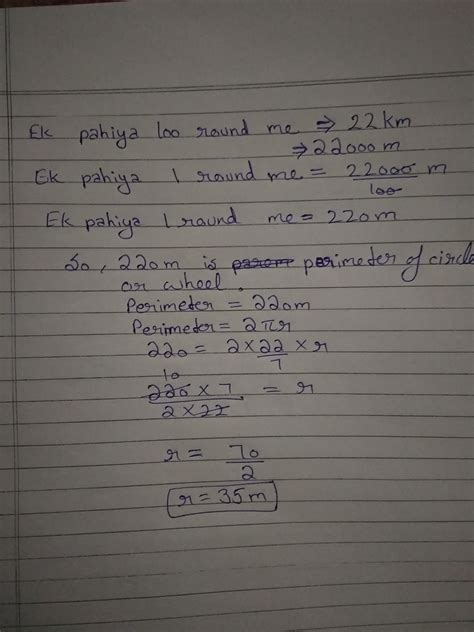 Ek pahiya 100 round me ⇒ 22 km
⇒ 22000 m
Ek pahiya 1 round me = 22000/100 m
Ek pahiya 1 round me = 220m
So, 220m is perimeter of circle
or wheel.
Perimeter = 220m
Perimeter = 2πr
220 = 2 × 22/7 × r
10
220 × 7 / 2 × 22 = r
r = 70/2
r = 35m